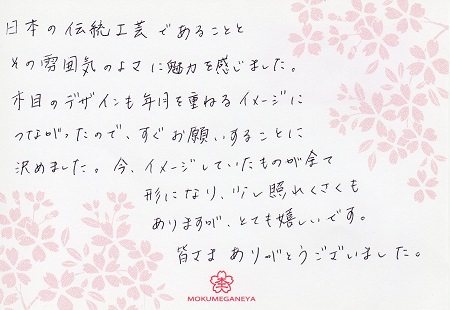 日本の伝統工芸であることと
その雰囲気のよさに魅力を感じました。
木目のデザインも年月を重ねるイメージに
つながったので、すぐお願いすることに
決めました。今、イメージしていたものが全て
形になり、少し照れくさくも
ありますが、とても嬉しいです。
皆さま ありがとうございました。
MOKUMEGANEYA